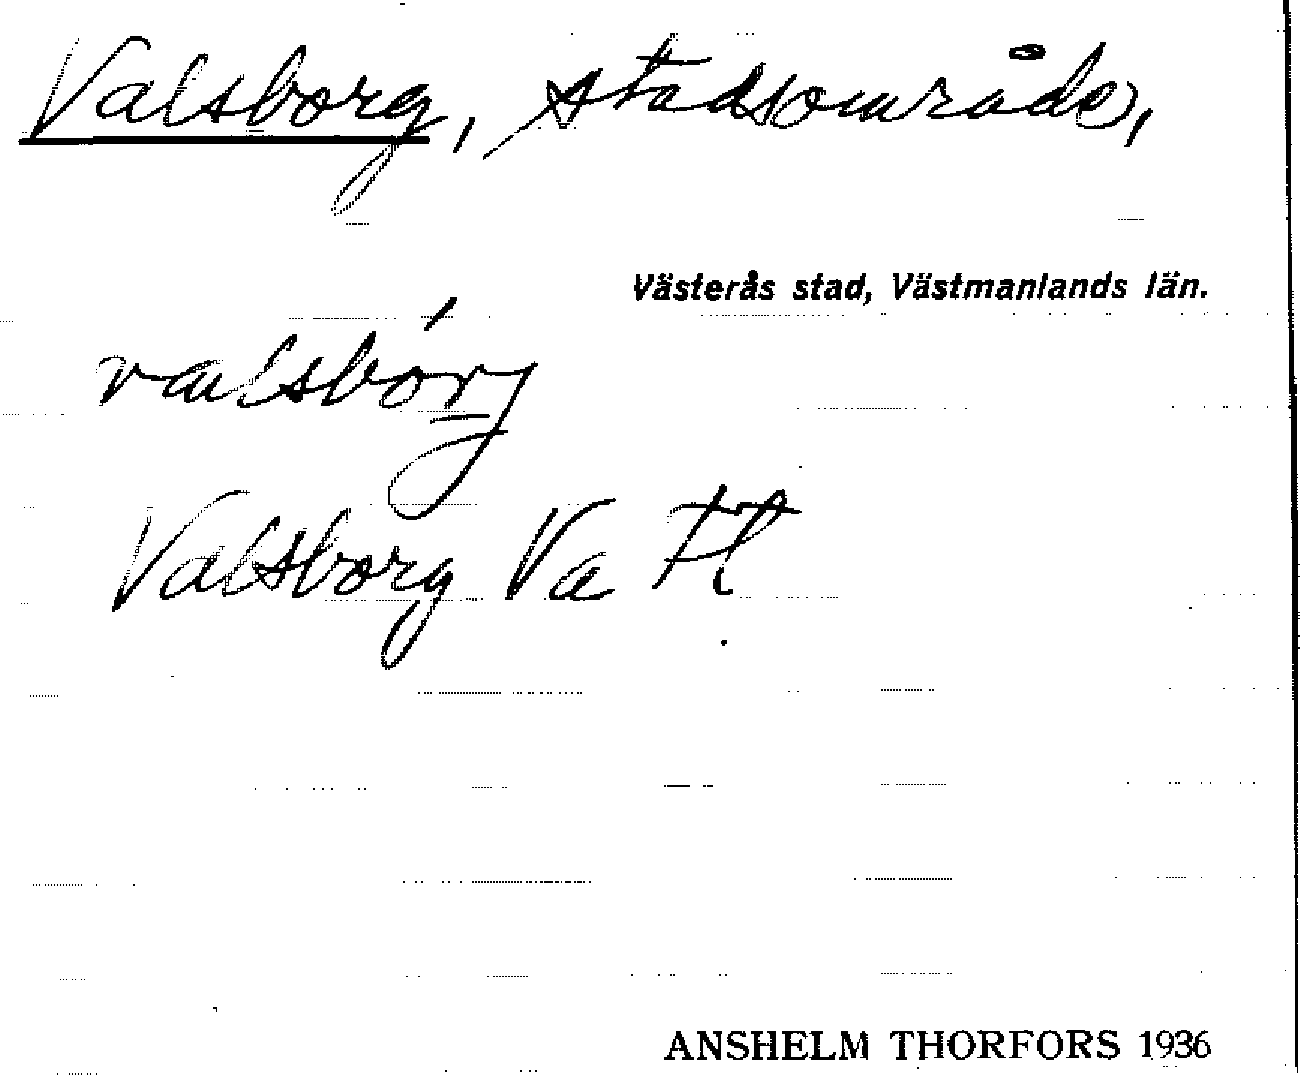 Valsborg, stadsområde,
Västerås stad, Västmanlands län.
valsbórg
Valsborg Va
ANSHELM THORFORS 1936